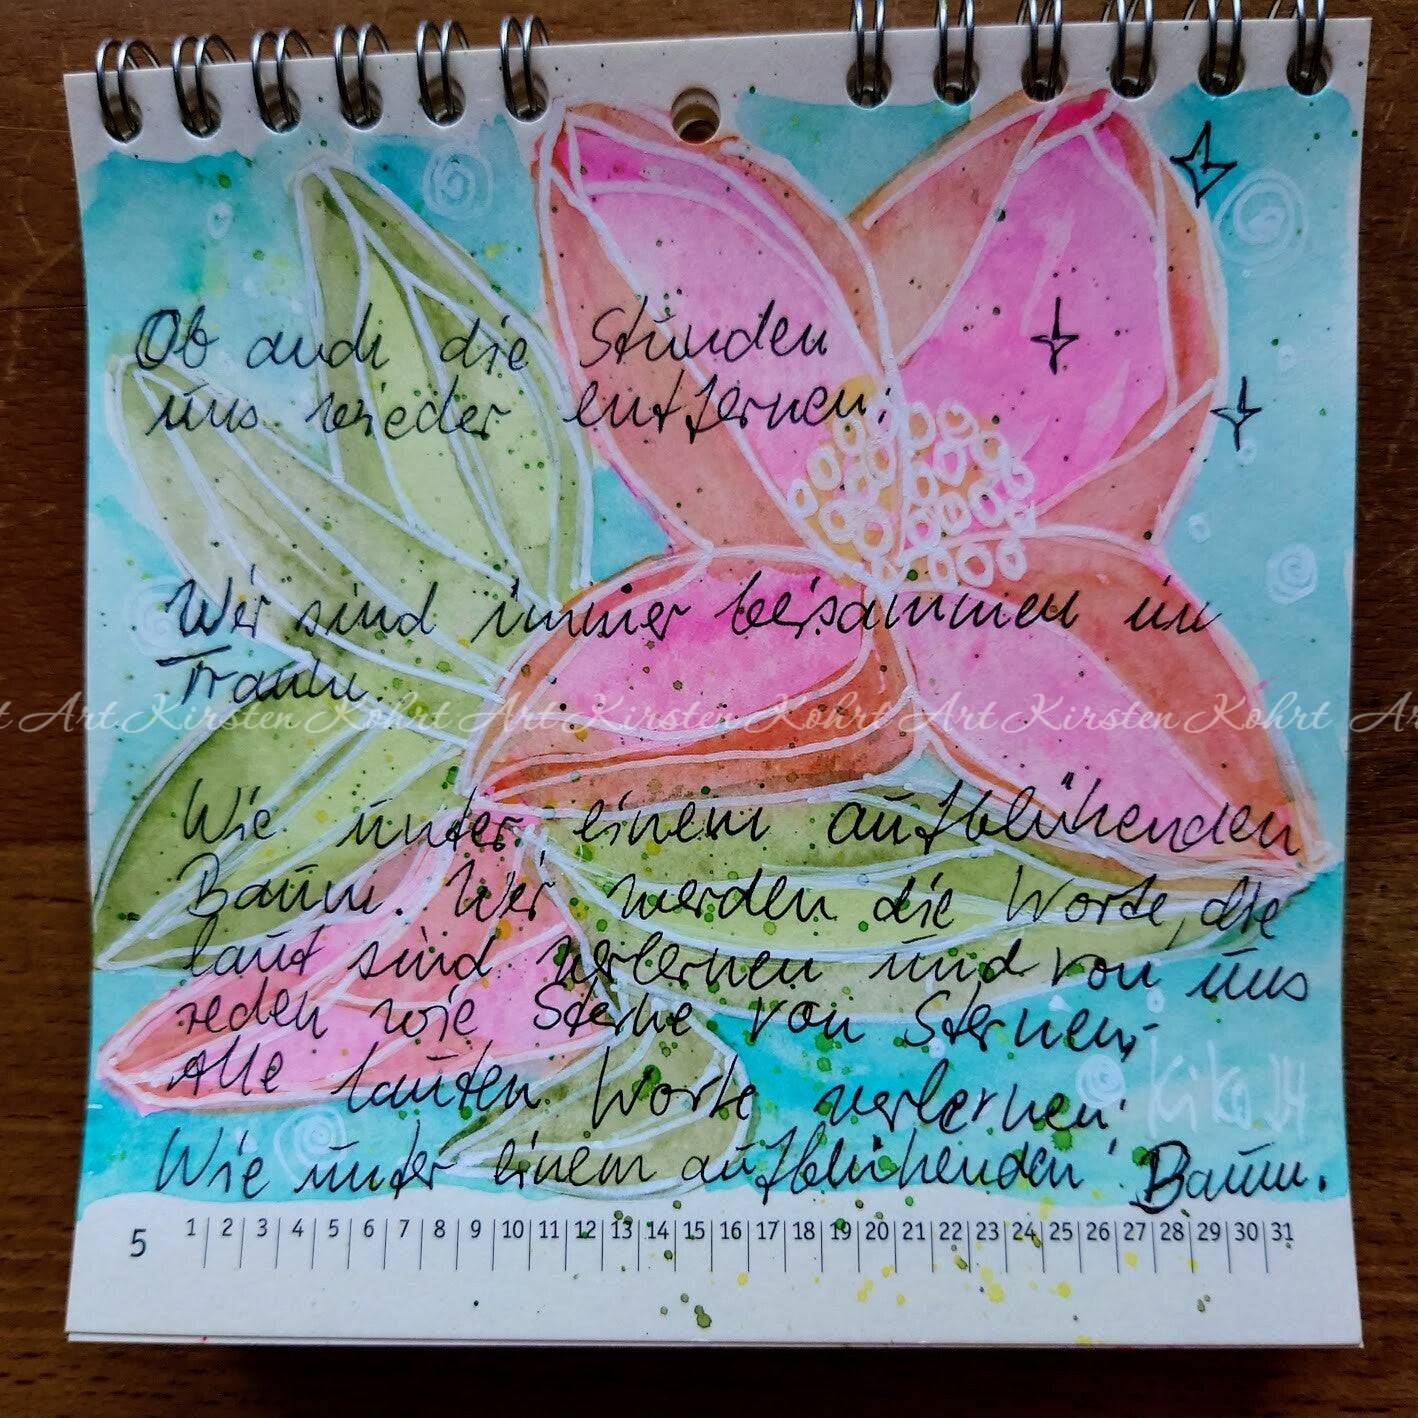 Ob auch die Stunden
uns wieder entfernen:
Wir sind immer beisammen im
Traum.
Wie unter einem aufblühenden
Baum. Wir werden die Worte, die
laut sind verlernen und von uns
reden wie Sterne von Sternen,-
Alle lauten Worte verlernen:
Wie unter einem aufblühenden Baum.
Kiko 24
Art Kirsten Kohrt Art Kirsten Kohrt Art Kirsten Kohrt
5 1 2 3 4 5 6 7 8 9 10 11 12 13 14 15 16 17 18 19 20 21 22 23 24 25 26 27 28 29 30 31